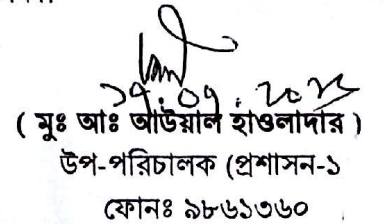 ১৭.০৭.২০২২
( মুঃ আঃ আউয়াল হাওলাদার )
উপ-পরিচালক (প্রশাসন-১
ফোনঃ ৯৮৬১৩৬০